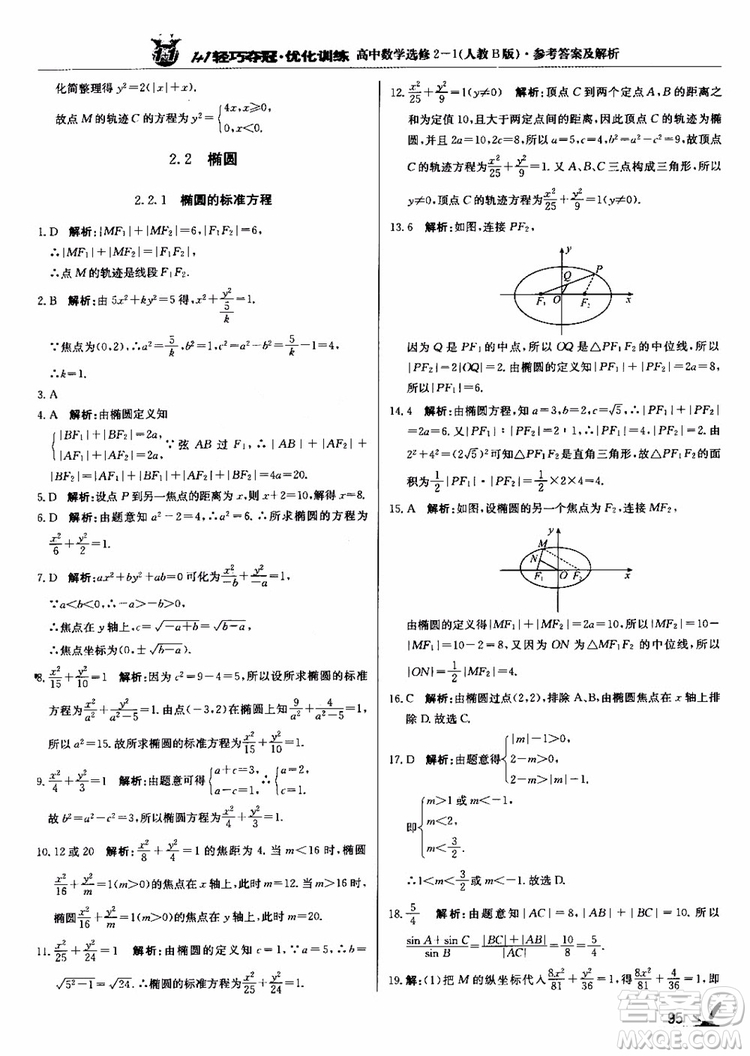 1+1轻巧夺冠·优化训练 高中数学选修2-1(人教B版)·参考答案及解析
化简整理得 y²=2(|x|+x).
故点 M 的轨迹 C 的方程为 y²={4x,x≥0,
0,x<0.
2.2 椭圆
2.2.1 椭圆的标准方程
1. D 解析:|MF₁|+|MF₂|=6,|F₁F₂|=6,
∴|MF₁|+|MF₂|=|F₁F₂|,
∴点 M 的轨迹是线段 F₁F₂.
2. B 解析:由 5x²+ky²=5 得,x²+y²/(5/k)=1.
∵焦点为(0,2),∴a²=5/k,b²=1,∴c²=a²-b²=5/k-1=4,
∴k=1.
3. A
4. A 解析:由椭圆定义知
{|BF₁|+|BF₂|=2a,
|AF₁|+|AF₂|=2a. ∵弦 AB 过 F₁,∴|AB|+|AF₂|+
|BF₂|=4a=20.
5. D 解析:设点 P 到另一焦点的距离为 x,则 x+2=10,解得 x=8.
6. D 解析:由题意知 a²-2=4,∴a²=6.∴所求椭圆的方程为
x²/6+y²/2=1.
7. D 解析:ax²+by²+ab=0 可化为 x²/-b+y²/-a=1.
∵a<b<0,∴-a>-b>0,
∴焦点在 y 轴上,c=√(-a+b)=√(b-a),
∴焦点坐标为(0,±√(b-a)).
8. x²/15+y²/10=1 解析:因为 c²=9-4=5,所以设所求椭圆的标准
方程为 x²/a²+y²/(a²-5)=1.由点(-3,2)在椭圆上知 9/a²+4/(a²-5)=1,所
以 a²=15.故所求椭圆的标准方程为 x²/15+y²/10=1.
9. x²/4+y²/3=1 解析:由题意可得{a+c=3,
a-c=1,∴{a=2,
c=1.
故 b²=a²-c²=3,所以椭圆方程为 x²/4+y²/3=1.
10. 12 或 20 解析:x²/8+y²/4=1 的焦距为 4.当 m<16 时,椭圆
x²/16+y²/m=1 的焦点在 x 轴上,此时 m=12.当 m>16 时,
椭圆 x²/16+y²/m=1 的焦点在 y 轴上,此时 m=20.
11. x²/25+y²/24=1 解析:由题意可得 2c=2,2a=10,故 c=1,b=
√(5²-1)=√24,所以椭圆的标准方程为 x²/25+y²/24=1.
12. x²/25+y²/9=1(y≠0) 解析:顶点 C 到两个定点 A、B 的距离之
和为定值 10,且大于两定点间的距离,因此顶点 C 的轨迹为椭
圆,并且 2a=10,2c=8,所以 a=5,c=4,b²=a²-c²=9.故顶点
C 的轨迹方程为 x²/25+y²/9=1.又 A、B、C 三点构成三角形,所以
y≠0,顶点 C 的轨迹方程为 x²/25+y²/9=1(y≠0).
13. 6 解析:如图,连接 PF₂,
y
Q P
F₁ O F₂ x
因为 Q 是 PF₁ 的中点,所以 OQ 是△PF₁F₂ 的中位线,所以
|PF₂|=2|OQ|=4.由椭圆的定义知|PF₁|+|PF₂|=2a=8,
所以|PF₁|=6.
14. 4 解析:由椭圆方程,知 a=3,b=2,c=√5,∴|PF₁|+|PF₂|
=2a=6.又|PF₁|:|PF₂|=2:1,∴|PF₁|=4,|PF₂|=2.由
2²+4²=(2√5)²可知△F₁PF₂ 是直角三角形,故△F₁PF₂ 的面
积为 1/2|PF₁|·|PF₂|=1/2×2×4=4.
15. A 解析:如图,设椭圆的另一个焦点为 F₂,连接 MF₂,
y
M
N
F₁ O F₂ x
由椭圆的定义得|MF₁|+|MF₂|=2a=10,所以|MF₂|=10-
|MF₁|=10-2=8.又因为 ON 为△MF₁F₂ 的中位线,所以
|ON|=1/2|MF₂|=4.故选 A.
16. C 解析:由椭圆过点(2,2),排除 A、B、由椭圆焦点在 x 轴上排
除 D.故选 C.
17. D 解析:由题意得{|m|-1>0,
2-m>0,
2-m>|m|-1,
即{m>1 或 m<-1,
m<2,
m<3/2.
∴1<m<3/2 或 m<-1.故选 D.
18. 5/4 解析:由题意知|AC|=8,|AB|+|BC|=10.所以
(sin A+sin C)/sin B=(|BC|+|AB|)/|AC|=10/8=5/4.
19. 解:(1)把 M 的纵坐标代入 8x²/81+y²/36=1,得 8x²/81+4/36=1,即
95